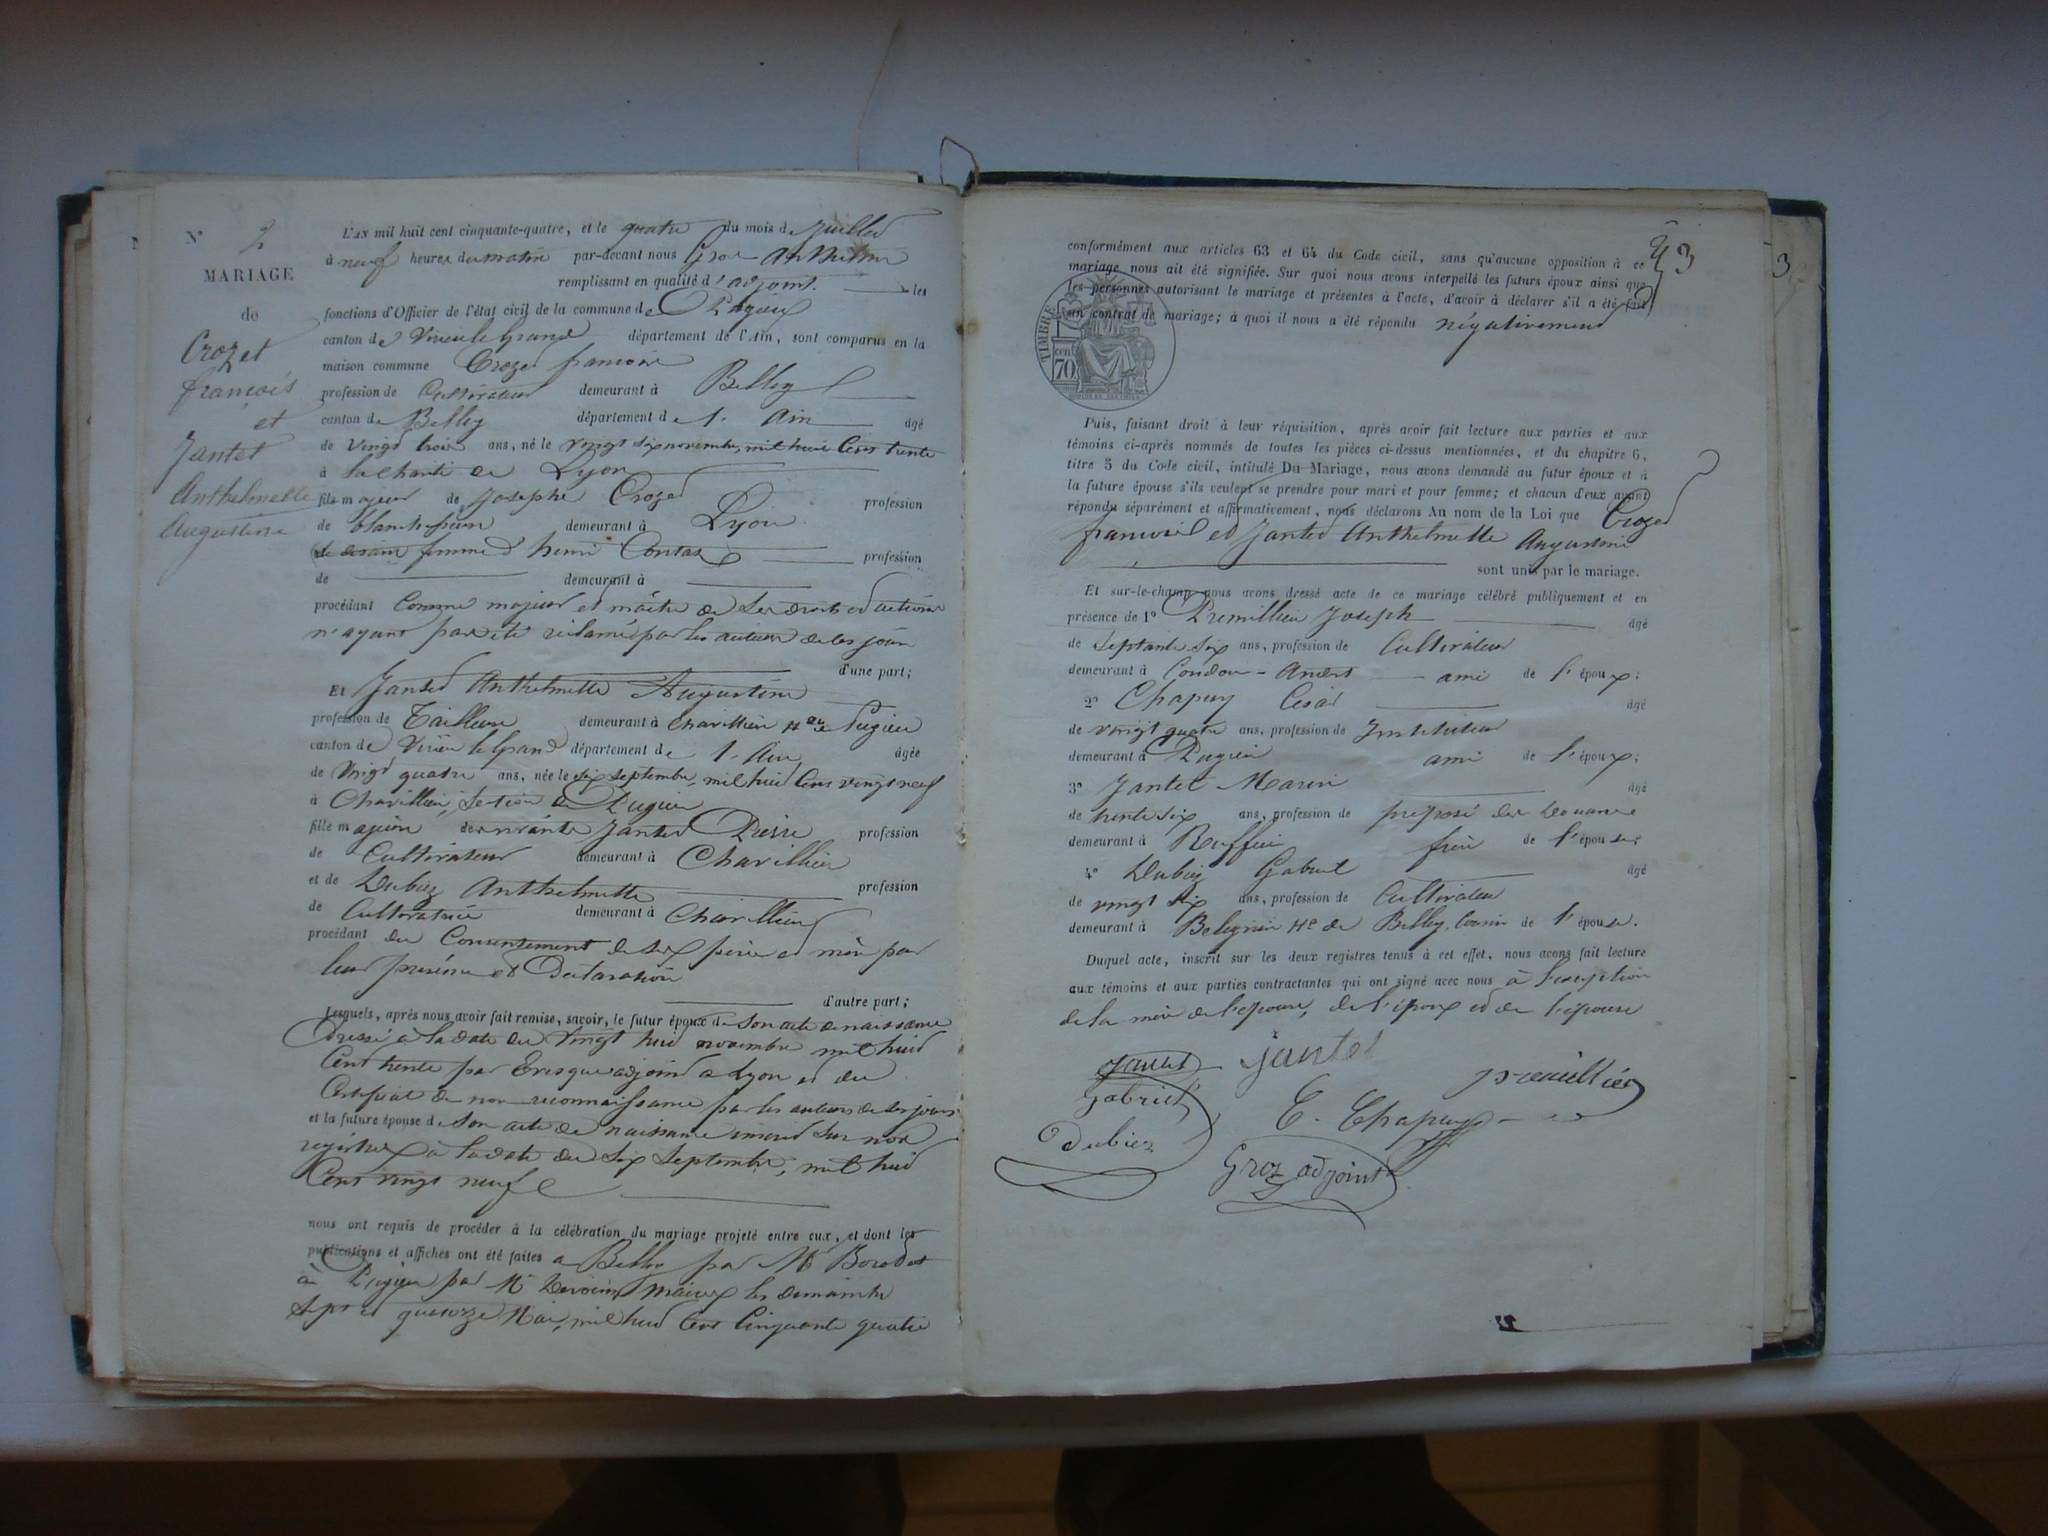 N° 2
MARIAGE
de
Crozet
françois
et
Jantet
Anthelmette
Augustine
L'AN mil huit cent cinquante-quatre, et le quatre du mois de Juillet
à neuf heures du matin par-devant nous Groz Anthelme
remplissant en qualité d'adjoint les
fonctions d'Officier de l'état civil de la commune de Pugieu
canton de Virieu le Grand département de l'Ain, sont comparus en la
maison commune Crozet françois
profession de Cultivateur demeurant à Belley
canton de Belley département de l'Ain âgé
de vingt trois ans, né le vingt six novembre, mil huit Cent trente
à la charité de Lyon
fils majeur de Joseph Crozet profession
de blanchisseur demeurant à Lyon
femme henri Contas profession
de demeurant à
procédant Comme majeur et maître de ses droits et actions
n'ayant pas été réclamé par les auteurs de ses jours
d'une part;
Et Jantet Anthelmette Augustine
profession de Tailleuse demeurant à Chavillieu hau de Pugieu
canton de Virieu le Grand département de l'Ain âgée
de vingt quatre ans, née le six septembre, mil huit Cent vingt neuf
à Chavillieu, section de Pugieu
fille majeure de Jantet Pierre profession
de Cultivateur demeurant à Chavillieu
et de Dubiez Anthelmette profession
de Cultivatrice demeurant à Chavillieu
procédant du Consentement de ses père et mère par
leur présence et Déclaration
d'autre part;
Lesquels, après nous avoir fait remise, savoir, le futur époux de son acte de naissance
dressé à la date du vingt huit novembre mil huit
Cent trente par Evesque adjoint à Lyon et du
Certificat de non reconnaissance par les auteurs de ses jours
et la future épouse de son acte de naissance inscrit sur nos
registres à la date du six septembre, mil huit
Cent vingt neuf
nous ont requis de procéder à la célébration du mariage projeté entre eux, et dont les
publications et affiches ont été faites à Belley par Mr
à Pugieu par Mr maires les dimanches
sept et quatorze Mai, mil huit Cent Cinquante quatre
3
3
conformément aux articles 63 et 64 du Code civil, sans qu'aucune opposition à ce
mariage nous ait été signifiée. Sur quoi nous avons interpellé les futurs époux ainsi que
les personnes autorisant le mariage et présentes à l'acte, d'avoir à déclarer s'il a été fait
un contrat de mariage; à quoi il nous a été répondu négativement
TIMBRE
70
cen
Puis, faisant droit à leur réquisition, après avoir fait lecture aux parties et aux
témoins ci-après nommés de toutes les pièces ci-dessus mentionnées, et du chapitre 6,
titre 5 du Code civil, intitulé Du Mariage, nous avons demandé au futur époux et à
la future épouse s'ils veulent se prendre pour mari et pour femme; et chacun d'eux ayant
répondu séparément et affirmativement, nous déclarons Au nom de la Loi que Crozet
françois et Jantet Anthelmette Augustine
sont unis par le mariage.
Et sur-le-champ nous avons dressé acte de ce mariage célébré publiquement et en
présence de 1° Premillieu Joseph âgé
de septante six ans, profession de Cultivateur
demeurant à Condon-Andert ami de l'époux;
2° Chapuy César âgé
de vingt quatre ans, profession de Instituteur
demeurant à Pugieu ami de l'époux;
3° Jantet Marin âgé
de trente six ans, profession de préposé des Douanes
demeurant à Ruffieu frère de l'épouse;
4° Dubiez Gabriel âgé
de vingt six ans, profession de Cultivateur
demeurant à Belignin de Belley, Cousin de l'épouse.
Duquel acte, inscrit sur les deux registres tenus à cet effet, nous avons fait lecture
aux témoins et aux parties contractantes qui ont signé avec nous à l'exception
de la mère de l'épouse, de l'époux et de l'épouse
jantet
premillieu
Gabriel
Dubiez
C. Chapuy
Groz adjoint